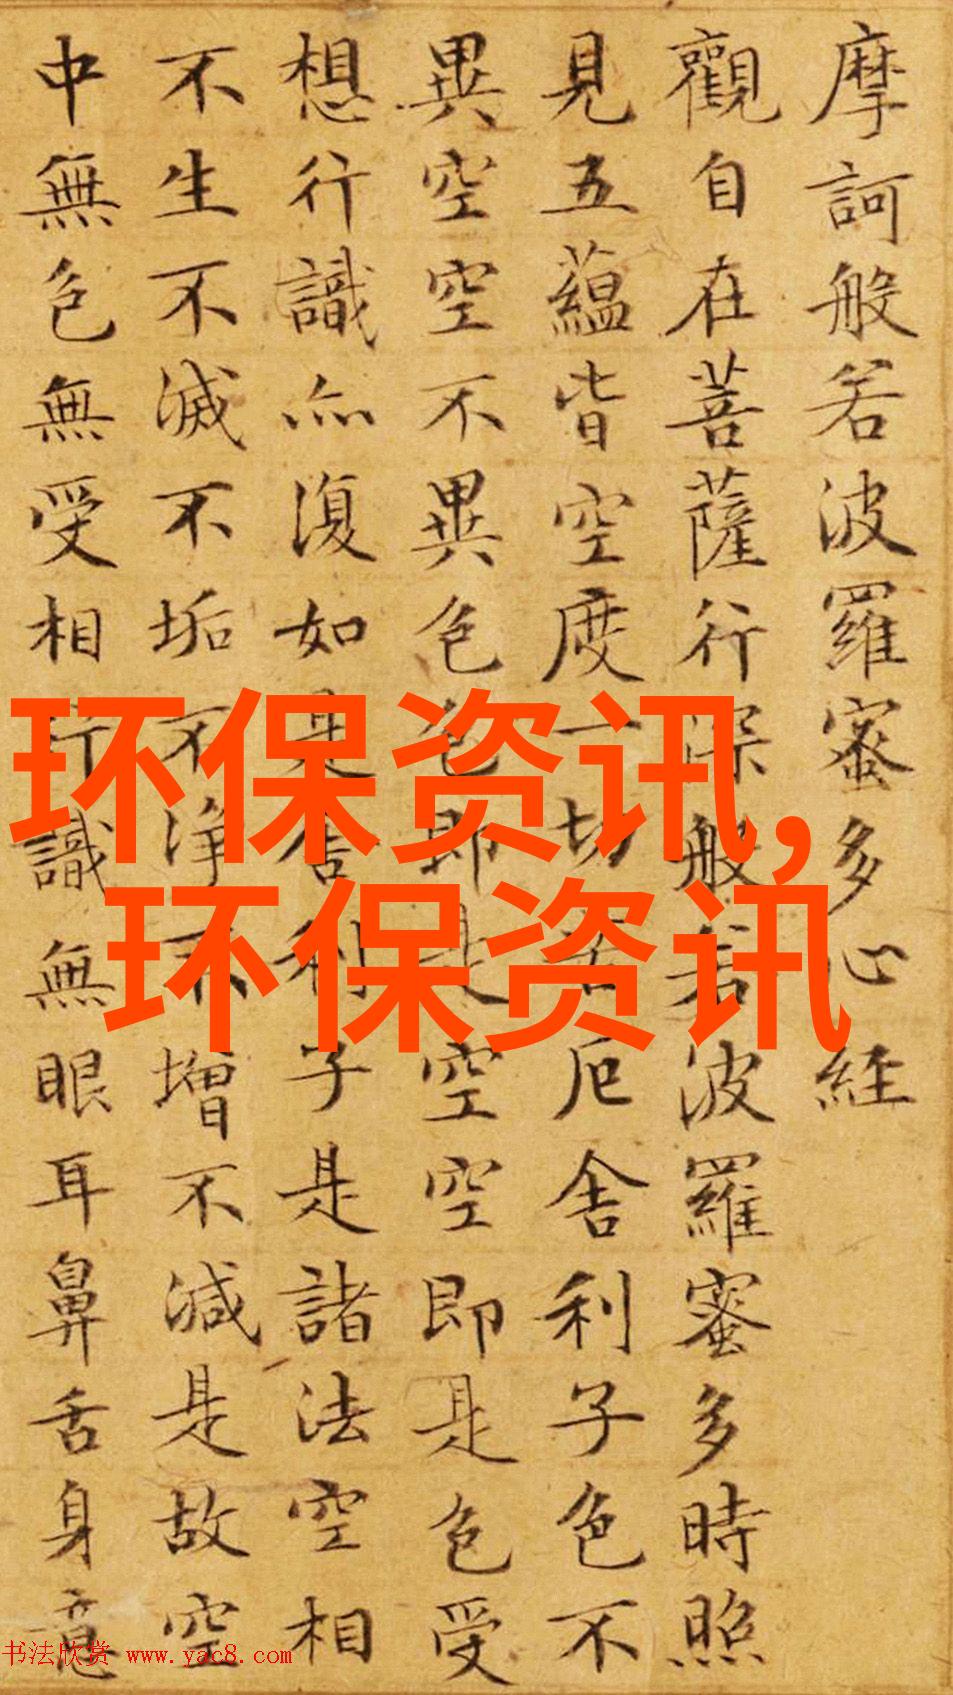 摩訶般若波羅蜜多心経
觀自在菩薩行深般若波羅蜜多時照
見五蘊皆空度一切苦厄舎利子色不
異空空不異色色即是空空即是色受
想行識亦復如是舎利子是諸法空相
不生不滅不垢不淨不增不減是故空
中無色無受相行識無眼耳鼻舌身意
环保资讯,
环保资讯
书法欣赏 www.yac8.com